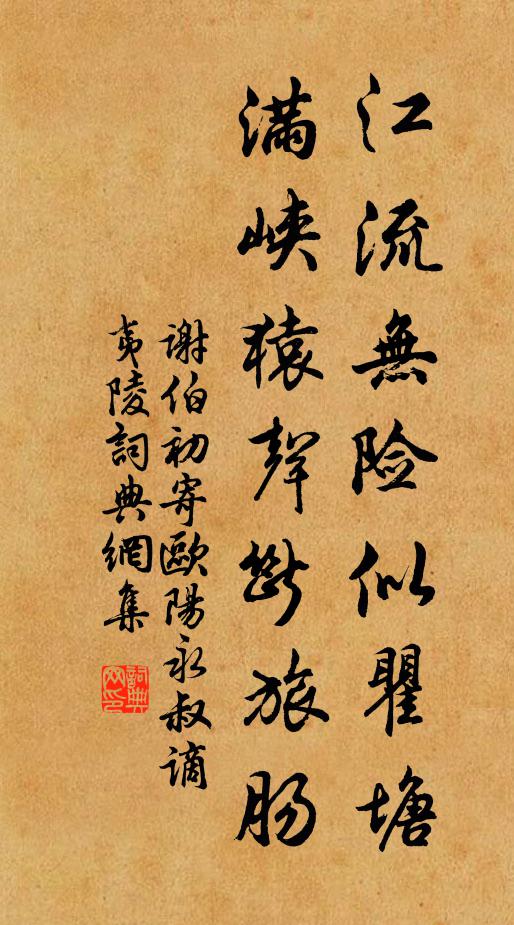 江流無險似瞿塘
滿峽猿聲斷旅肠
謝伯初寄歐陽永叔謫
夷陵詞典網集
詞典
网印